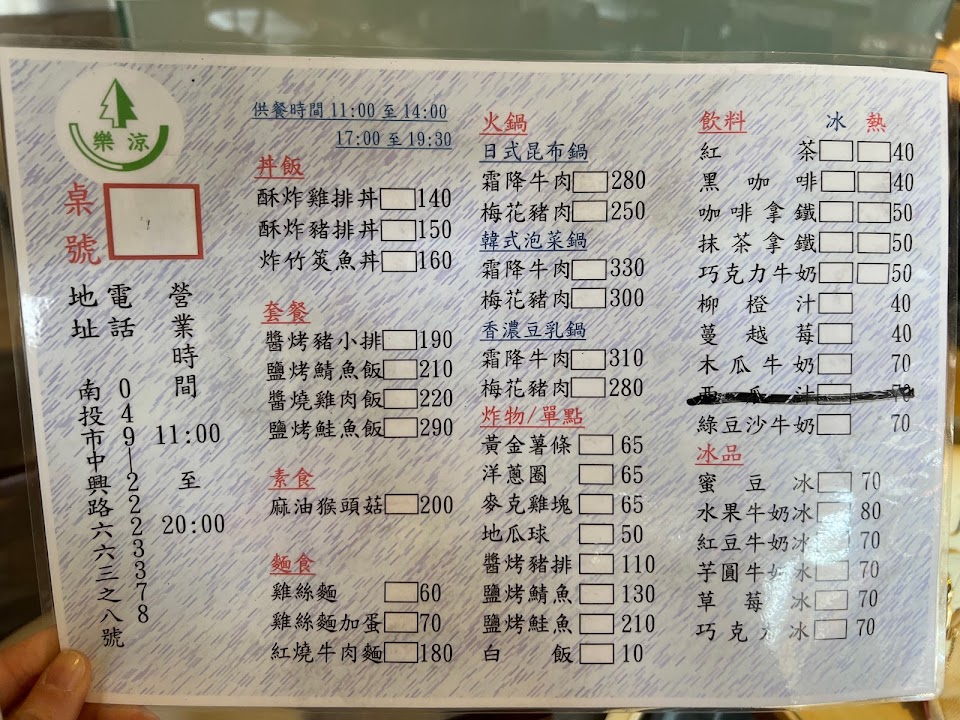 樂涼
桌號
營業時間
11:00
至
20:00
電話
049-2223378
地址
南投市中興路六六三之八號
供餐時間 11:00 至 14:00
17:00 至 19:30
丼飯
酥炸雞排丼 140
酥炸豬排丼 150
炸竹筴魚丼 160
套餐
醬烤豬小排 190
鹽烤鯖魚飯 210
醬燒雞肉飯 220
鹽烤鮭魚飯 290
素食
麻油猴頭菇 200
麵食
雞絲麵 60
雞絲麵加蛋 70
紅燒牛肉麵 180
火鍋
日式昆布鍋
霜降牛肉 280
梅花豬肉 250
韓式泡菜鍋
霜降牛肉 330
梅花豬肉 300
香濃豆乳鍋
霜降牛肉 310
梅花豬肉 280
炸物/單點
黃金薯條 65
洋蔥圈 65
麥克雞塊 65
地瓜球 50
醬烤豬排 110
鹽烤鯖魚 130
鹽烤鮭魚 210
白飯 10
飲料 冰 熱
紅茶 40
黑咖啡 40
咖啡拿鐵 50
抹茶拿鐵 50
巧克力牛奶 50
柳橙汁 40
蔓越莓 40
木瓜牛奶 70
西瓜汁 70
綠豆沙牛奶 70
冰品
蜜豆冰 70
水果牛奶冰 80
紅豆牛奶冰 70
芋圓牛奶冰 70
草莓冰 70
巧克力冰 70